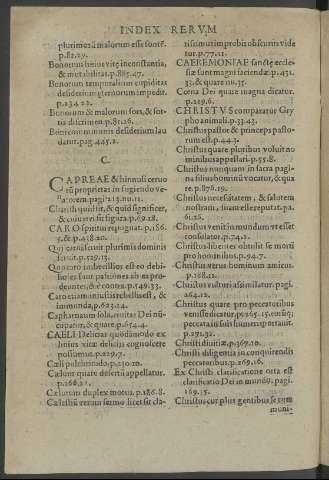 INDEX RERVM
plurimorũ malorum esse fonte.
p.82.29.
Bonorum huius vitę inconstantia,
& mutabilitas. p.885.47.
Bonorum temporalium cupiditas
desiderium magnorum impedit.
p.134.22.
Bonorum & malorum fons, & for-
tis discrimen. p.81.26.
Boni communis desiderium lau
datur. pag.445.1.
C.
CAPREAE & hinnuli ceruo
rũ proprietas in fugiendo ve-
natorem. pagi.213.nu.11.
Charitas quid sit, & quid significet,
& cuius res sit figura. p.69.18.
CARO spiritui repugnat. p.186.
5.& p.418.20.
Qui caro sit pluribus dominis
seruit. p.529.13.
Quatuor imbecillitas est eo debi-
lior
dentes, & è contra. p.149.33.
Caro etiam iustis rebellis est, &
immunda, p.623.14.
Capharnaum sola, ciuitas Dei nũ-
cupatur, & quare. p.654.4.
CAELI Delicias quodãmodo ex
huius vitæ delicijs cognoscere
possumus. p.229.7.
Cæli pulchritudo. p.230.10.
Cælum quare desertũ appellatur.
p.166.21.
Cælorum duplex motus. p.186.8.
Cælestiũ rerum sermo licet sit cla-
rissimus improbis obscurus vide
tur. p.77.11.
CAEREMONIAE sanctę eccle-
siæ sunt magni faciendæ. p.431.
33. & quare nu.35.
Cena Dei quare magna dicatur.
p.229.6.
CHRISTVS comparatur Gry
pho animali. p.33.43.
Christus pastor & princeps pasto-
rum est. p.44.3.
Christus quare pluribus voluit no
minibus appellari. p.55.8.
Christus nunquam in sacra pagi-
na filius hominũ vocatur, & qua
re. p.876.19.
Christus necessitatem, & salutem
nostram, suam esse reputat. pa.
61.26.
Christus venit in mundum vt esset
consulator. p.74.2.
Christus libenter obtulit se morti
pro hominibus. p.94.7.
Christus verus dominus amicus.
p.168.21.
Christus vulturi assimilatur. pagi.
264.12.
Christus quare pro peccatoribus
venisse dicatur. p.265.15. cùm sęp;
peccata iustis sui sumens portauit.
p.271.32.
Christi diuitiæ. p.367.10.
Christi diligentia in conquirendis
peccatoribus. p.269.16.
Ex Christi clarificatione orta est
clarificatio Dei in mundo. pagi.
169.15.
Christus cur plus gentibus se com
muni-